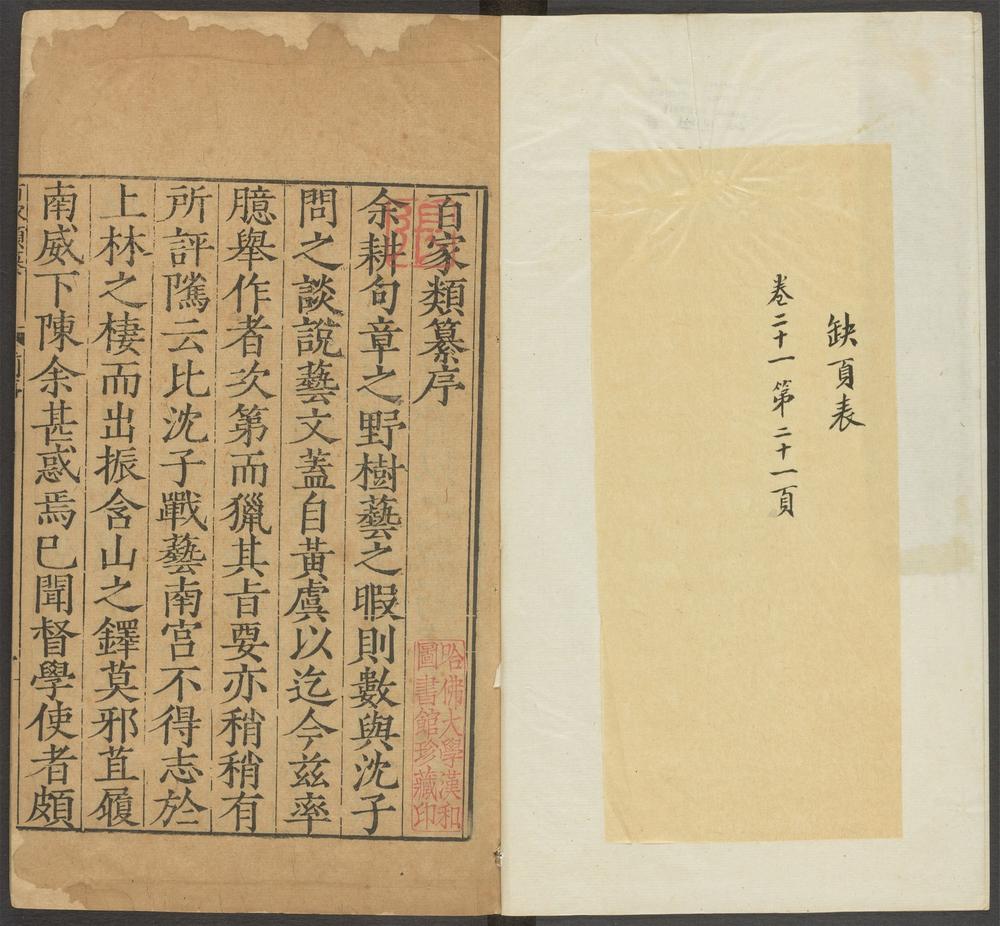 缺頁表
卷二十一 第二十一頁
百家類纂序
余耕句章之野樹藝之暇則數與沈子
問之談說藝文蓋自黃虞以迄今茲率
臆舉作者次第而獵其旨要亦稍稍有
所評隲云比沈子戰藝南宮不得志於
上林之棲而出振含山之鐸莫邪苴履
南威下陳余甚惑焉已聞督學使者頗
哈佛大學漢和
圖書館珍藏印